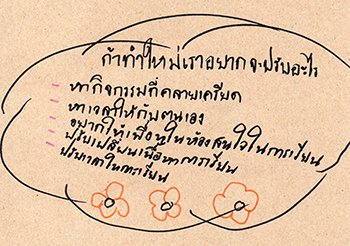 ถ้าทำใหม่เราอยากจะปรับอะไร
หากิจกรรมที่คลายเครียด
หาเวลาให้กับตนเอง
อยากให้เพื่อนในห้องสนใจในการเรียน
ปรับเปลี่ยนเนื้อหาการเรียน
ปรับเวลาในการเรียน